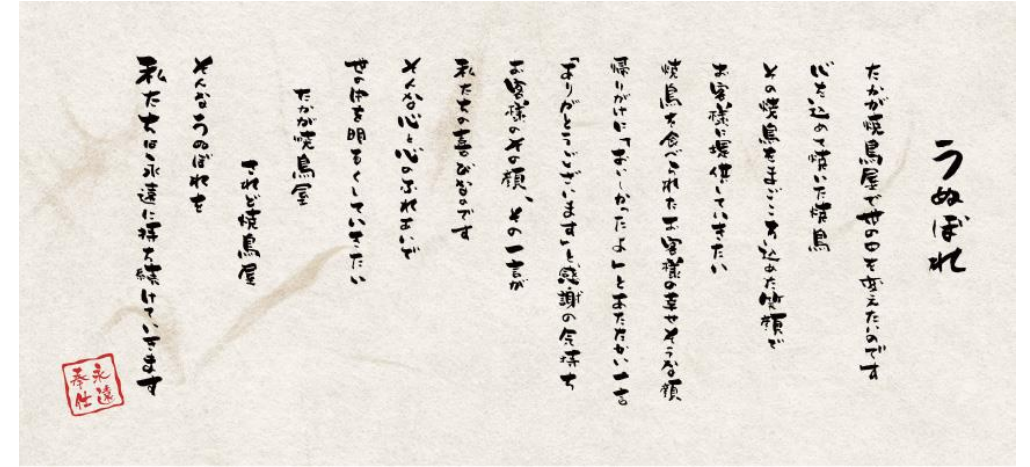 うぬぼれ
たかが焼鳥屋で世の中を変えたいのです
心を込めて焼いた焼鳥
その焼鳥をまごころ込めた笑顔で
お客様に提供していきたい
焼鳥を食べられたお客様の幸せそうな顔
帰りがけに「おいしかったよ」とあたたかい一言
「ありがとうございます」と、感謝の気持ち
お客様のその顔、その一言が
私たちの喜びなのです
そんな心と心のふれあいで
世の中を明るくしていきたい
たかが焼鳥屋
されど焼鳥屋
そんなうぬぼれを
私たちは永遠に持ち続けていきます
永遠
奉仕